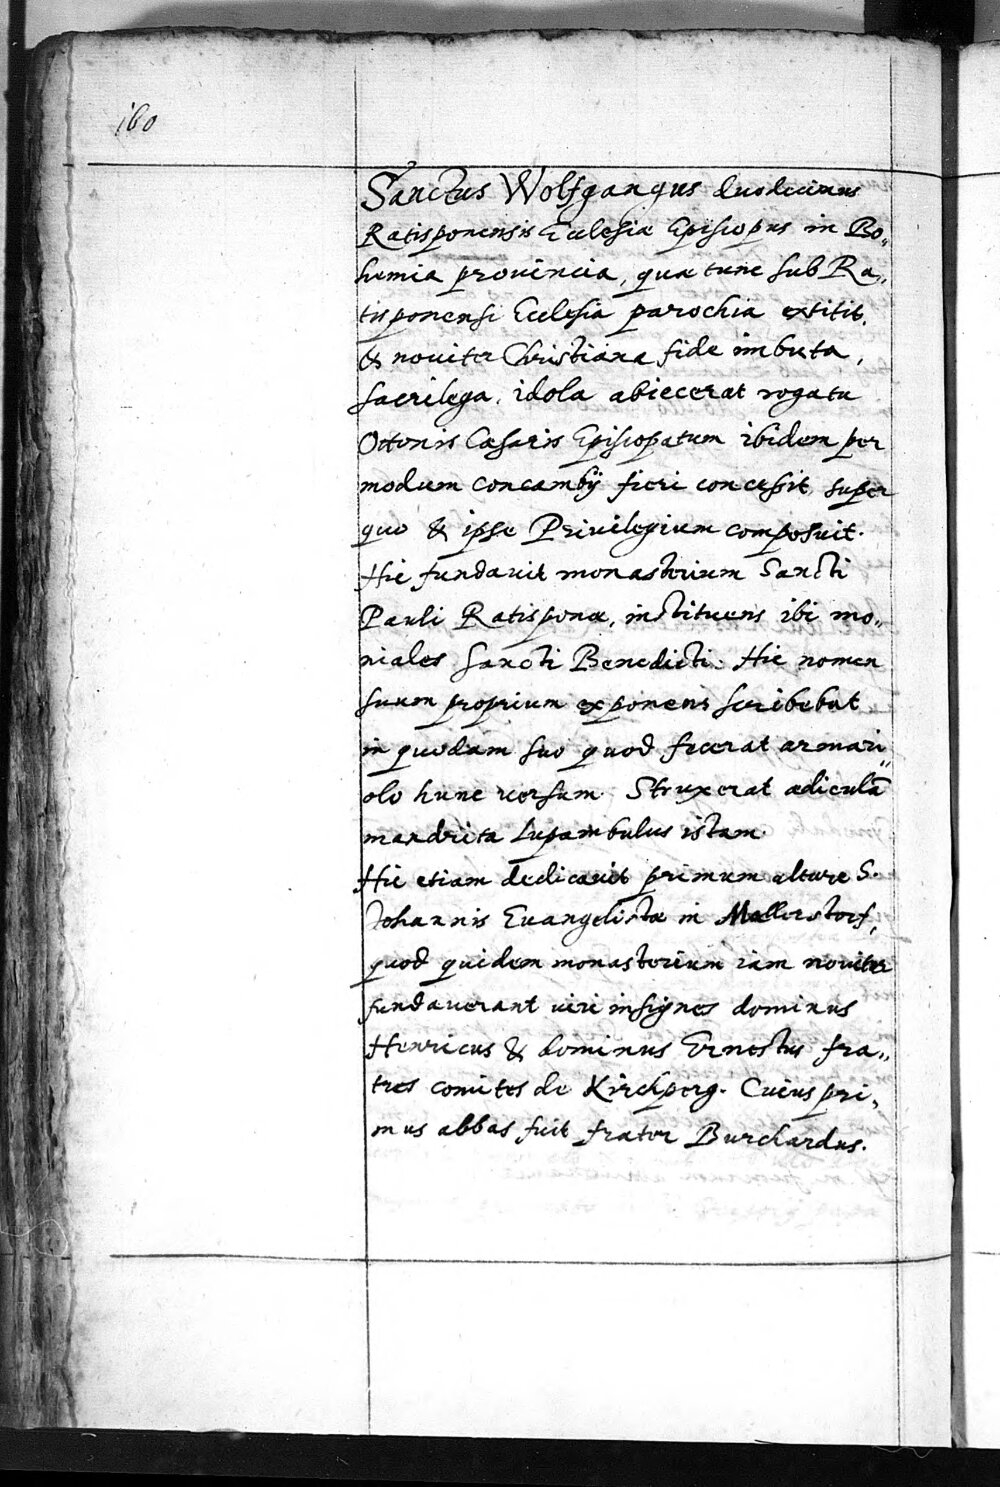 160
Sanctus Wolfgangus duodecimus
Ratisponensis Ecclesiæ Episcopus in Bo„
hemia prouincia, quæ tunc sub Ra„
tisponensi Ecclesia parochia extitit,
& nouiter Christiana fide imbuta,
sacrilega idola abiecerat rogatu
Ottonis Cæsaris Episcopatum ibidem per
modum concambij fieri concessit, super
quo & ipse Priuilegium composuit.
Hic fundauit monasterium Sancti
Pauli Ratisponæ, instituens ibi mo„
niales Sancti Benedicti. Hic nomen
suum proprium exponens scribebat
in quodam suo quod fecerat armari„
olo hunc versum. Struxerat ædiculā
mandrita Lupambulus istam.
Hic etiam dedicauit primum altare S.
Johannis Euangelistæ in Mallerstorf,
quod quidem monasterium iam nouiter
fundauerant viri insignes dominus
Henricus & dominus Ernestus fra„
tres comites de Kirchperg. Cuius pri„
mus abbas fuit frater Burchardus.